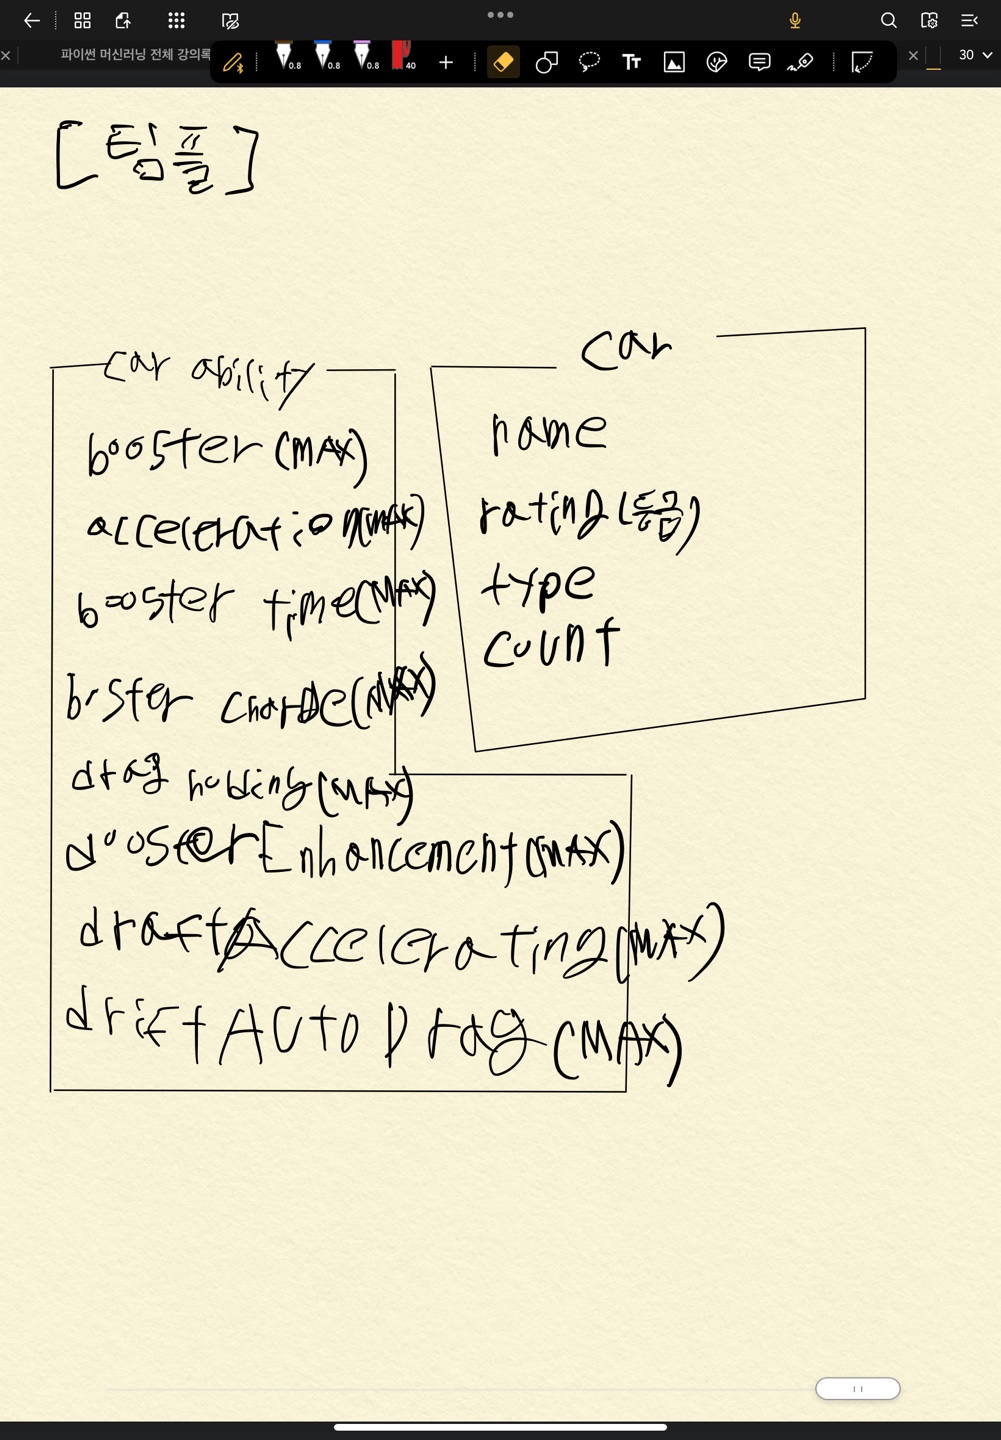 파이썬 머신러닝 전체 강의록
0.8
0.8
0.8
40
Tт
30
[팀플]
car ability
booster (MAX)
acceleration(MAX)
booster time(MAX)
booster charge(MAX)
drag holding(MAX)
boosterEnhancement(MAX)
draftAccelerating(MAX)
driftAutoDrag(MAX)
car
name
rating(등급)
type
count